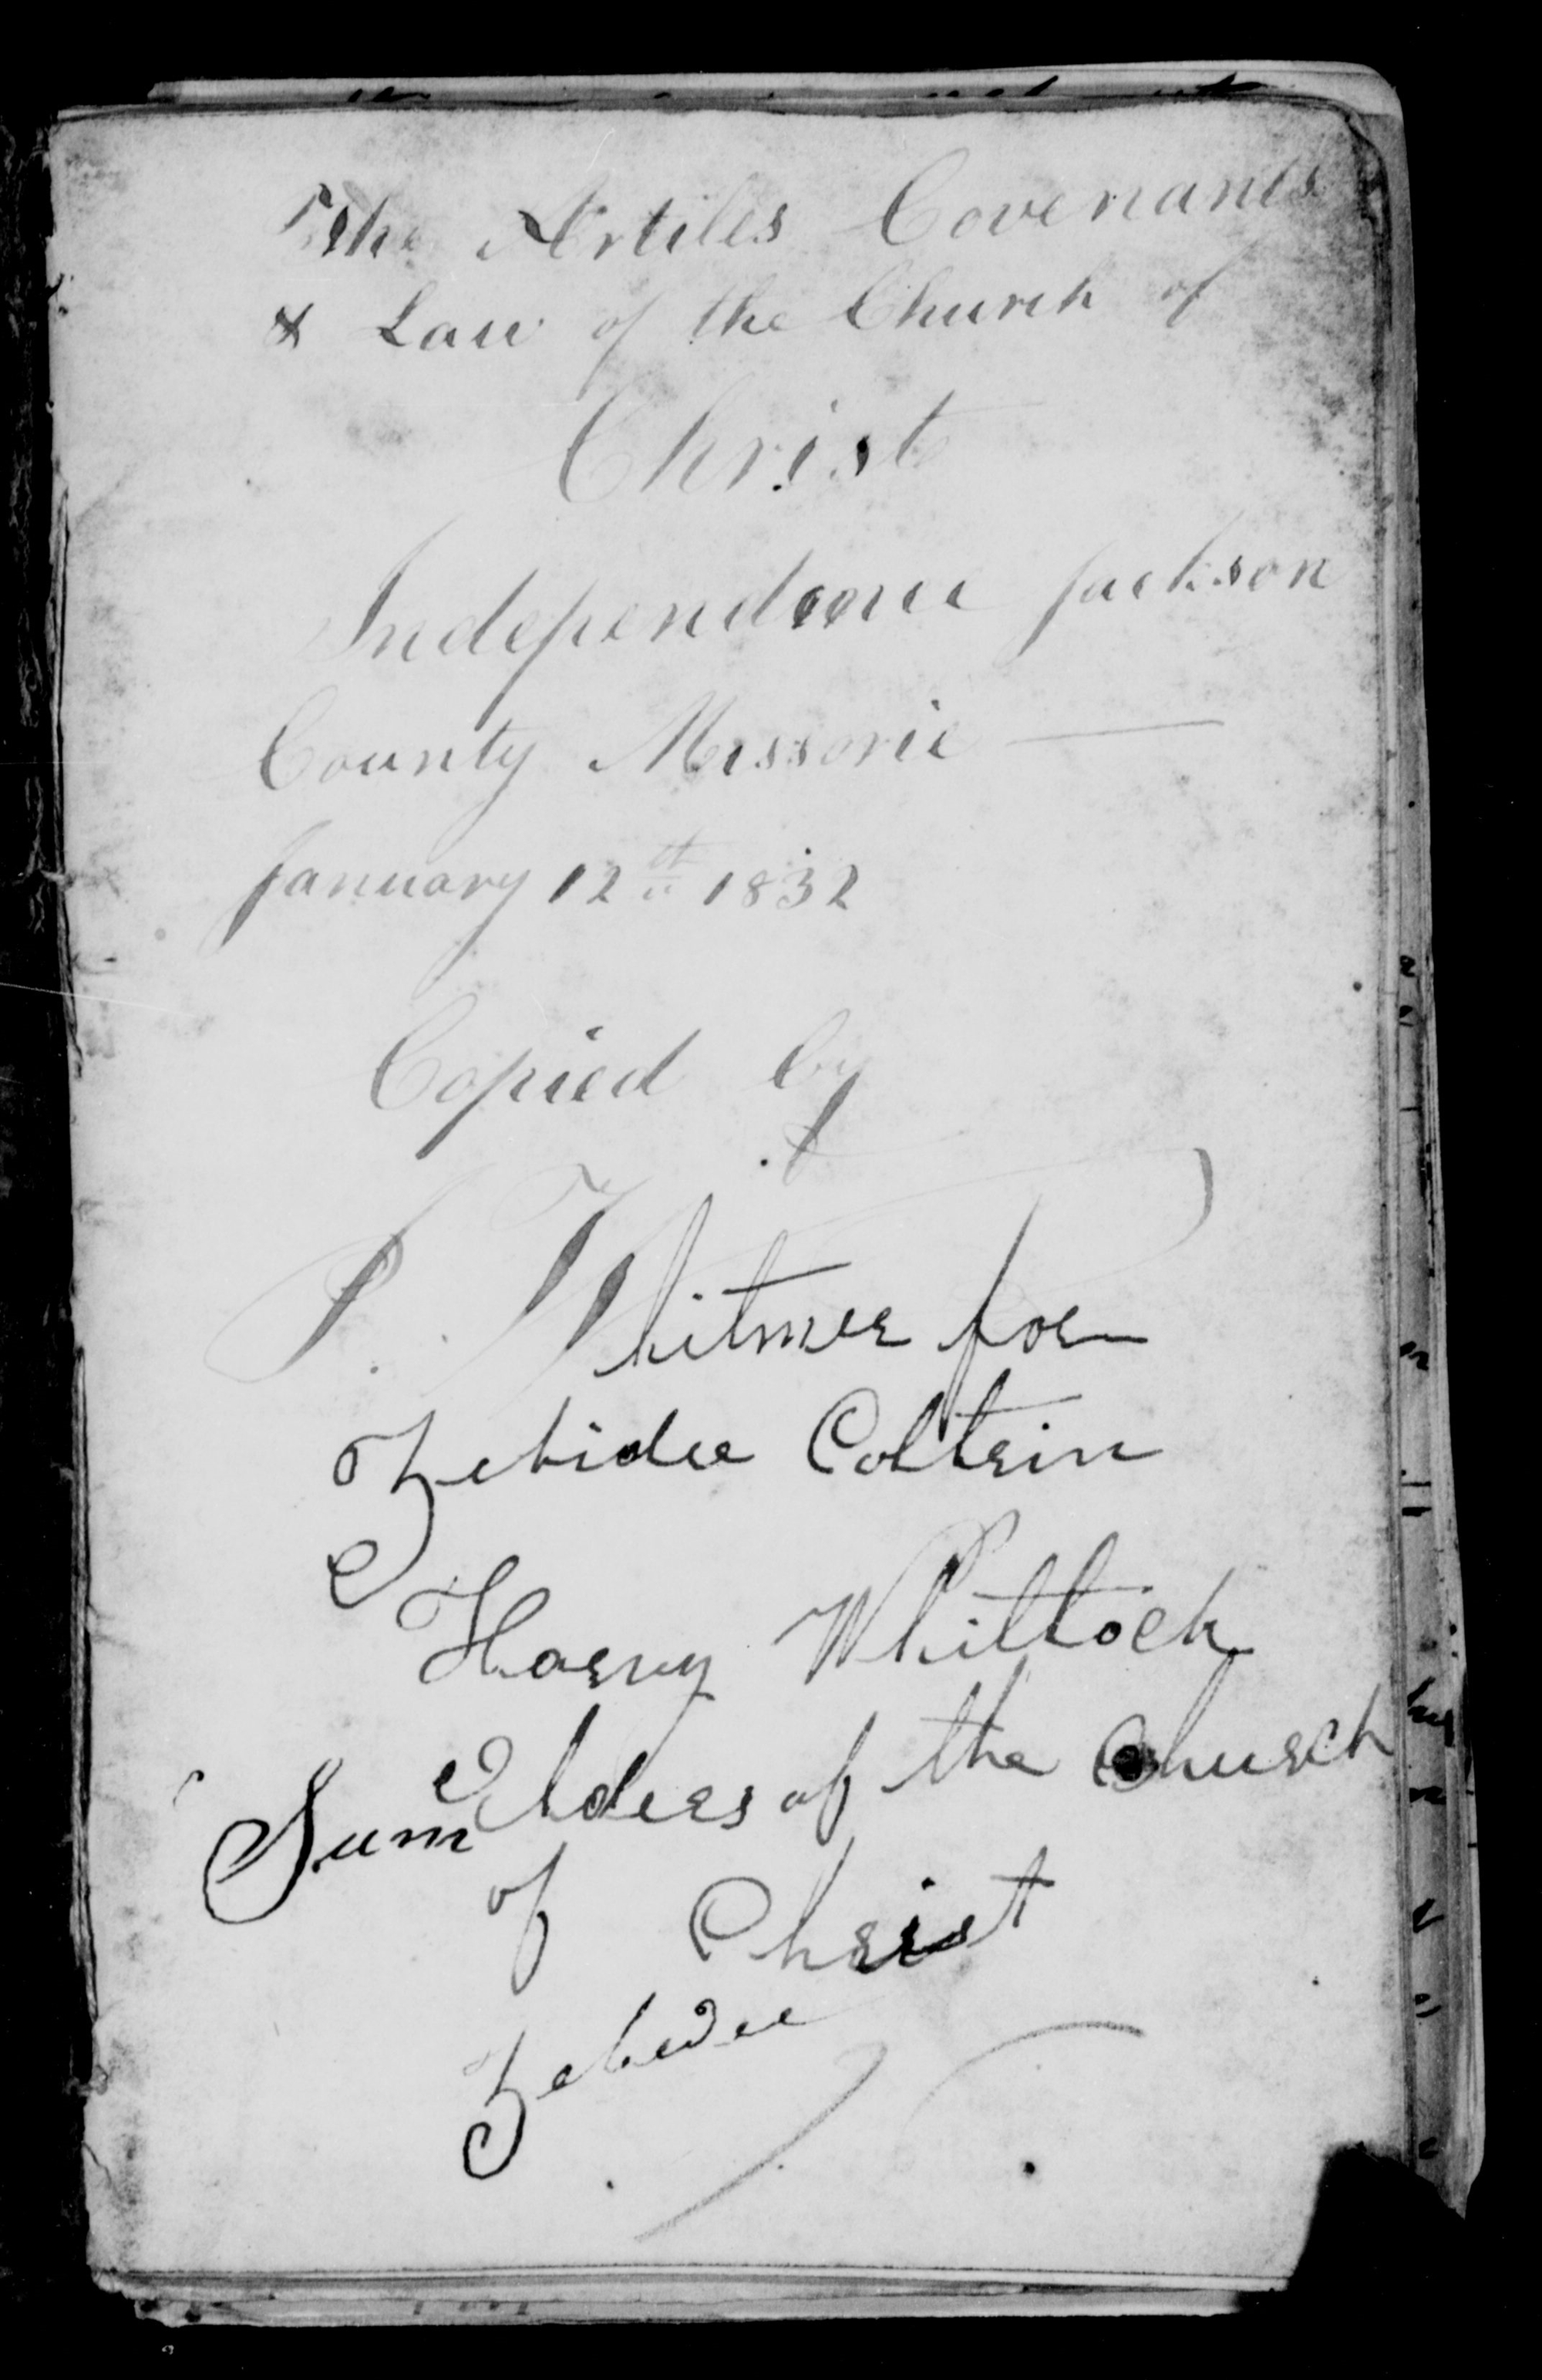 The Artiles Covenants
& Law of the Church of
Christ
Independance Jackson
County Missorie —
January 12th 1832
Copied by
P. Whitmer for
Zebidee Coltrin
Harvy Whitlock
Sum Elders of the Church
of Christ
Zebedee